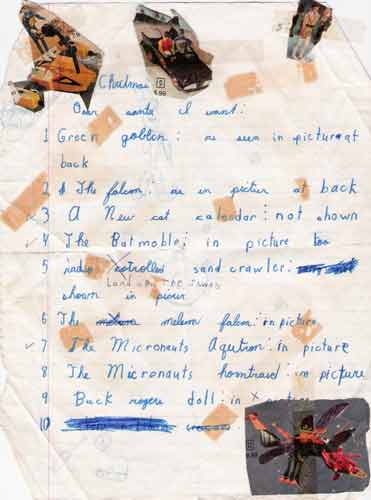 Christmas
Dear santa I want:
1 Green goblen: as seen in picture at
back
2 The falcon: as in pictier at back
3 A New cat calendar: not shown
4 The Batmoble: in picture too
5 radio cotrolled sand crawler:
Land of the Jawas
shown in
6 The melenm falcon: in picture
7 The Micronauts in picture
8 The Micronauts in picture
9 Buck rogers doll: in
10